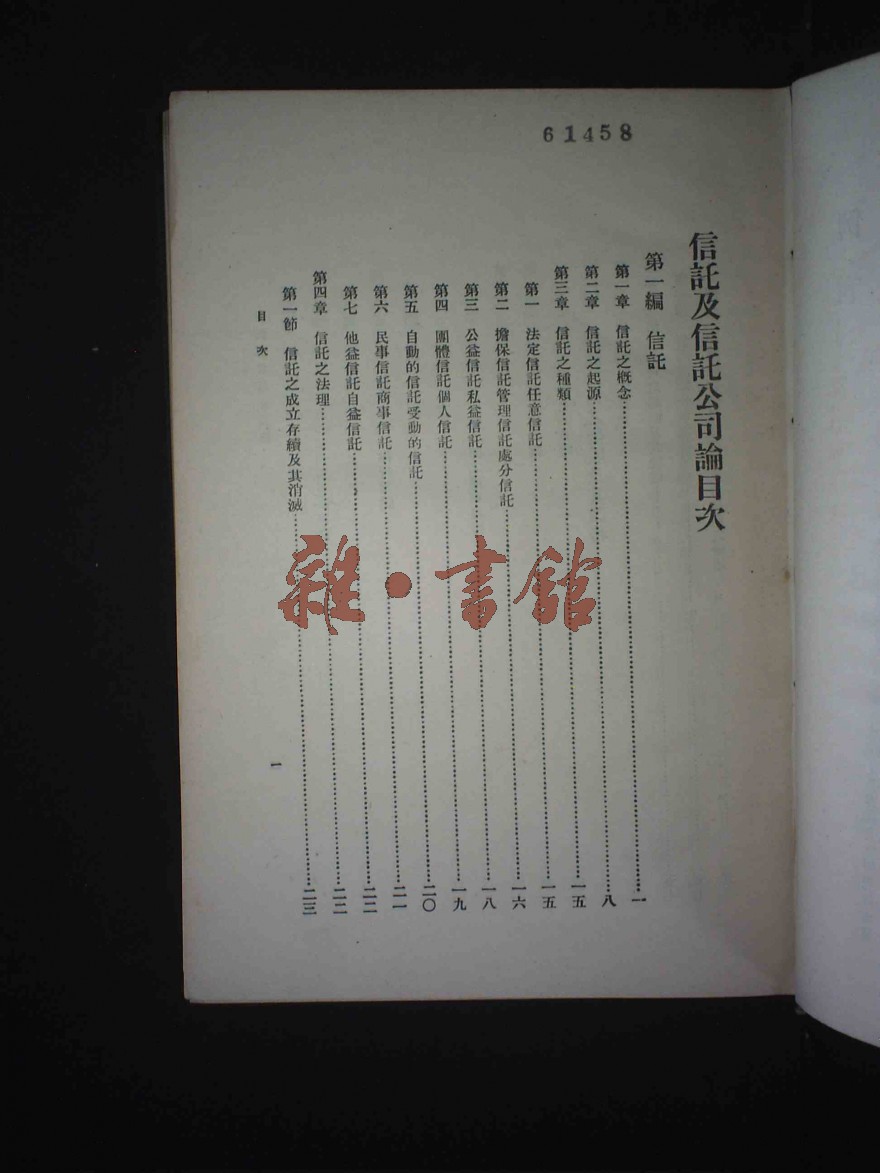 61458
信託及信託公司論目次
第一編 信託
第一章 信託之概念……一
第二章 信託之起源……八
第三章 信託之種類……一五
第一 法定信託任意信託……一五
第二 擔保信託管理信託處分信託……一六
第三 公益信託私益信託……一八
第四 團體信託個人信託……一九
第五 自動的信託受動的信託……二〇
第六 民事信託商事信託……二一
第七 他益信託自益信託……二二
第四章 信託之法理……二二
第一節 信託之成立存續及其消滅……二三
目次
一
雜·書館